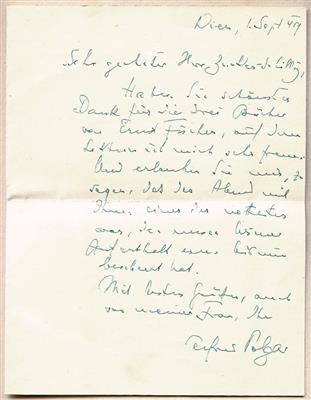 Wien, 1. Sept 49
Sehr geehrter Herr
Haben Sie schönsten
Dank für die drei Bücher
von Ernst Fischer, auf deren
Lektüre ich mich sehr freue.
Und erlauben Sie mir, zu
sagen, daß der Abend mit
Ihnen einer der nettesten
war, den unser Wiener
Aufenthalt uns bisher
beschert hat.
Mit besten Grüßen, auch
von meiner Frau, Ihr
Alfred Polgar